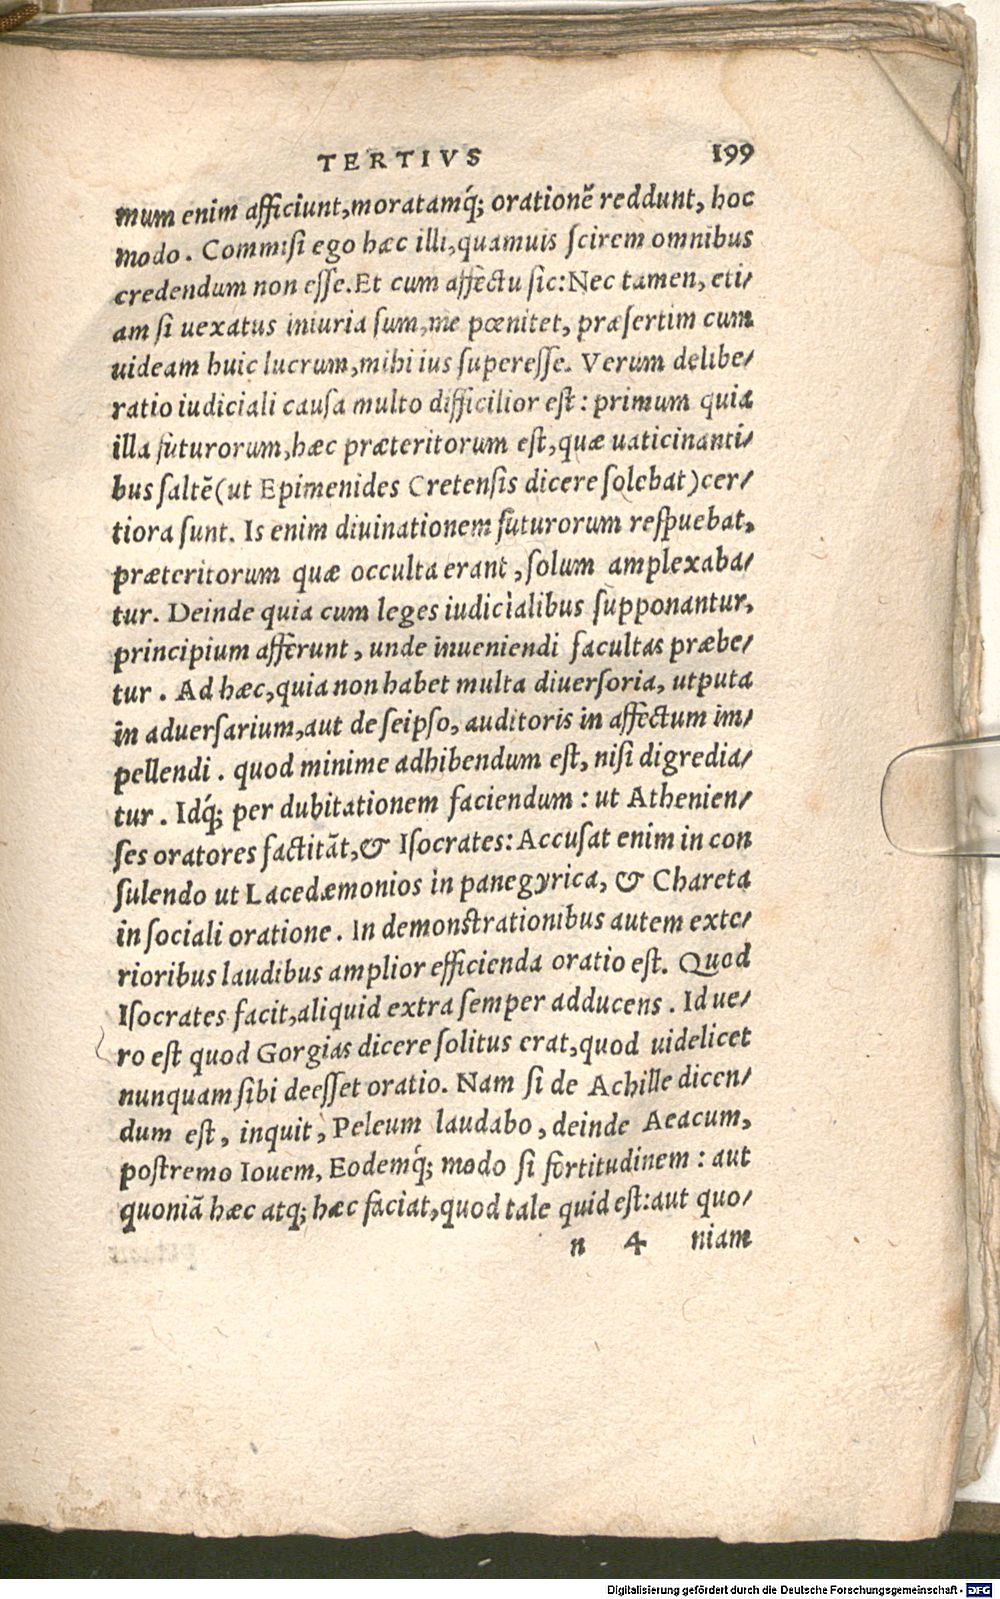 TERTIVS 199
mum enim afficiunt, moratamq́; orationē reddunt, hoc
modo. Commiſi ego hæc illi, quamuis ſcirem omnibus
credendum non eſſe. Et cum affectu ſic: Nec tamen, eti/
am ſi uexatus iniuria ſum, me pœnitet, præſertim cum
uideam huic lucrum, mihi ius ſupereſſe. Verum delibe/
ratio iudiciali cauſa multo difficilior eſt: primum quia
illa futurorum, hæc præteritorum eſt, quæ uaticinanti/
bus ſaltē (ut Epimenides Cretenſis dicere ſolebat) cer/
tiora ſunt. Is enim diuinationem futurorum reſpuebat,
præteritorum quæ occulta erant, ſolum amplexaba/
tur. Deinde quia cum leges iudicialibus ſupponantur,
principium afferunt, unde inueniendi facultas præbe/
tur. Ad hæc, quia non habet multa diuerſoria, utputa
in aduerſarium, aut de ſeipſo, auditoris in affectum im/
pellendi. quod minime adhibendum eſt, niſi digredia/
tur. Idq́; per dubitationem faciendum: ut Athenien/
ſes oratores factitāt, & Iſocrates: Accuſat enim in con
ſulendo ut Lacedæmonios in panegyrica, & Chareta
in ſociali oratione. In demonſtrationibus autem exte/
rioribus laudibus amplior efficienda oratio eſt. Quod
Iſocrates facit, aliquid extra ſemper adducens. Id ue/
ro eſt quod Gorgias dicere ſolitus erat, quod uidelicet
nunquam ſibi deeſſet oratio. Nam ſi de Achille dicen/
dum eſt, inquit, Peleum laudabo, deinde Aeacum,
poſtremo Iouem, Eodemq́; modo ſi fortitudinem: aut
quoniā hæc atq; hæc faciat, quod tale quid eſt: aut quo/
n 4 niam
Digitalisierung gefördert durch die Deutsche Forschungsgemeinschaft - DFG